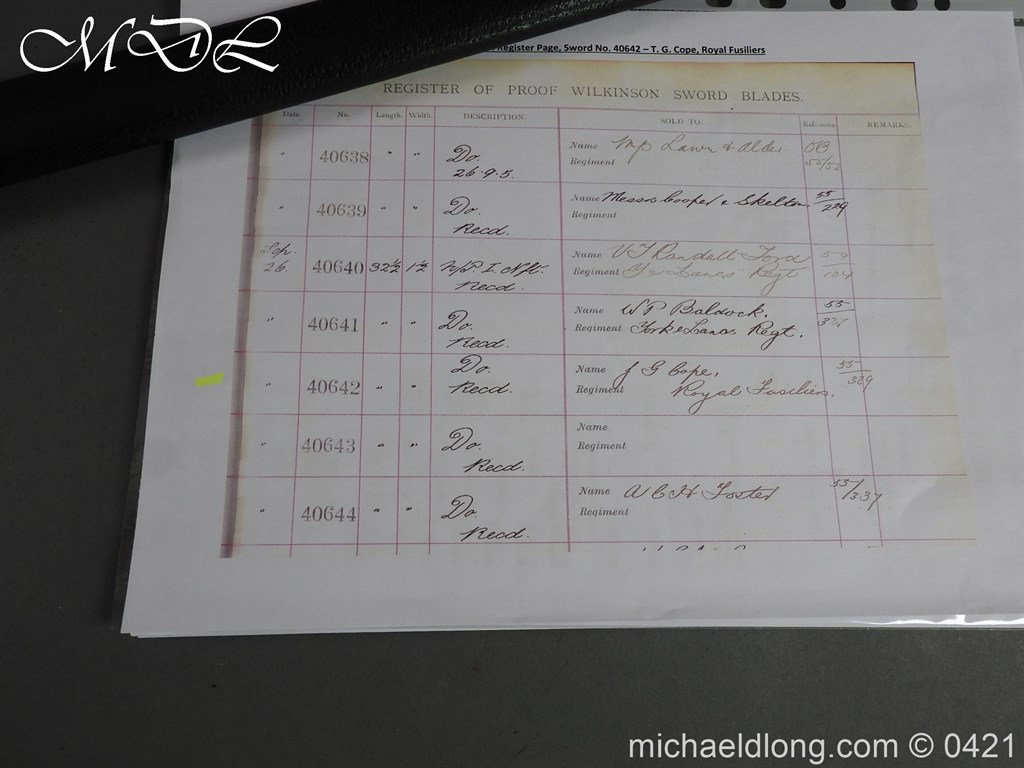 MDL
Register Page, Sword No. 40642 – T. G. Cope, Royal Fusiliers
REGISTER OF PROOF WILKINSON SWORD BLADES.
Date. No. Length. Width. DESCRIPTION. SOLD TO. Reference. REMARKS.
" 40638 " " Do. Name
26.9.5. Regiment
" 40639 " " Do. Name Messrs Cooper & Skelton. 55/229
Recd. Regiment
Sep. Name V F Randall Ford 54/104
26. 40640 32½ 1½ Regiment Y & Lancs Regt
Recd.
" 40641 " " Do. Name W P Baldock. 55
Recd. Regiment York & Lancs Regt.
" 40642 " " Do. Name J G Cope, 55/329
Recd. Regiment Royal Fusiliers.
" 40643 " " Do. Name
Recd. Regiment
" 40644 " " Do. Name A C H Foster 55/337
Recd. Regiment
michaeldlong.com © 0421